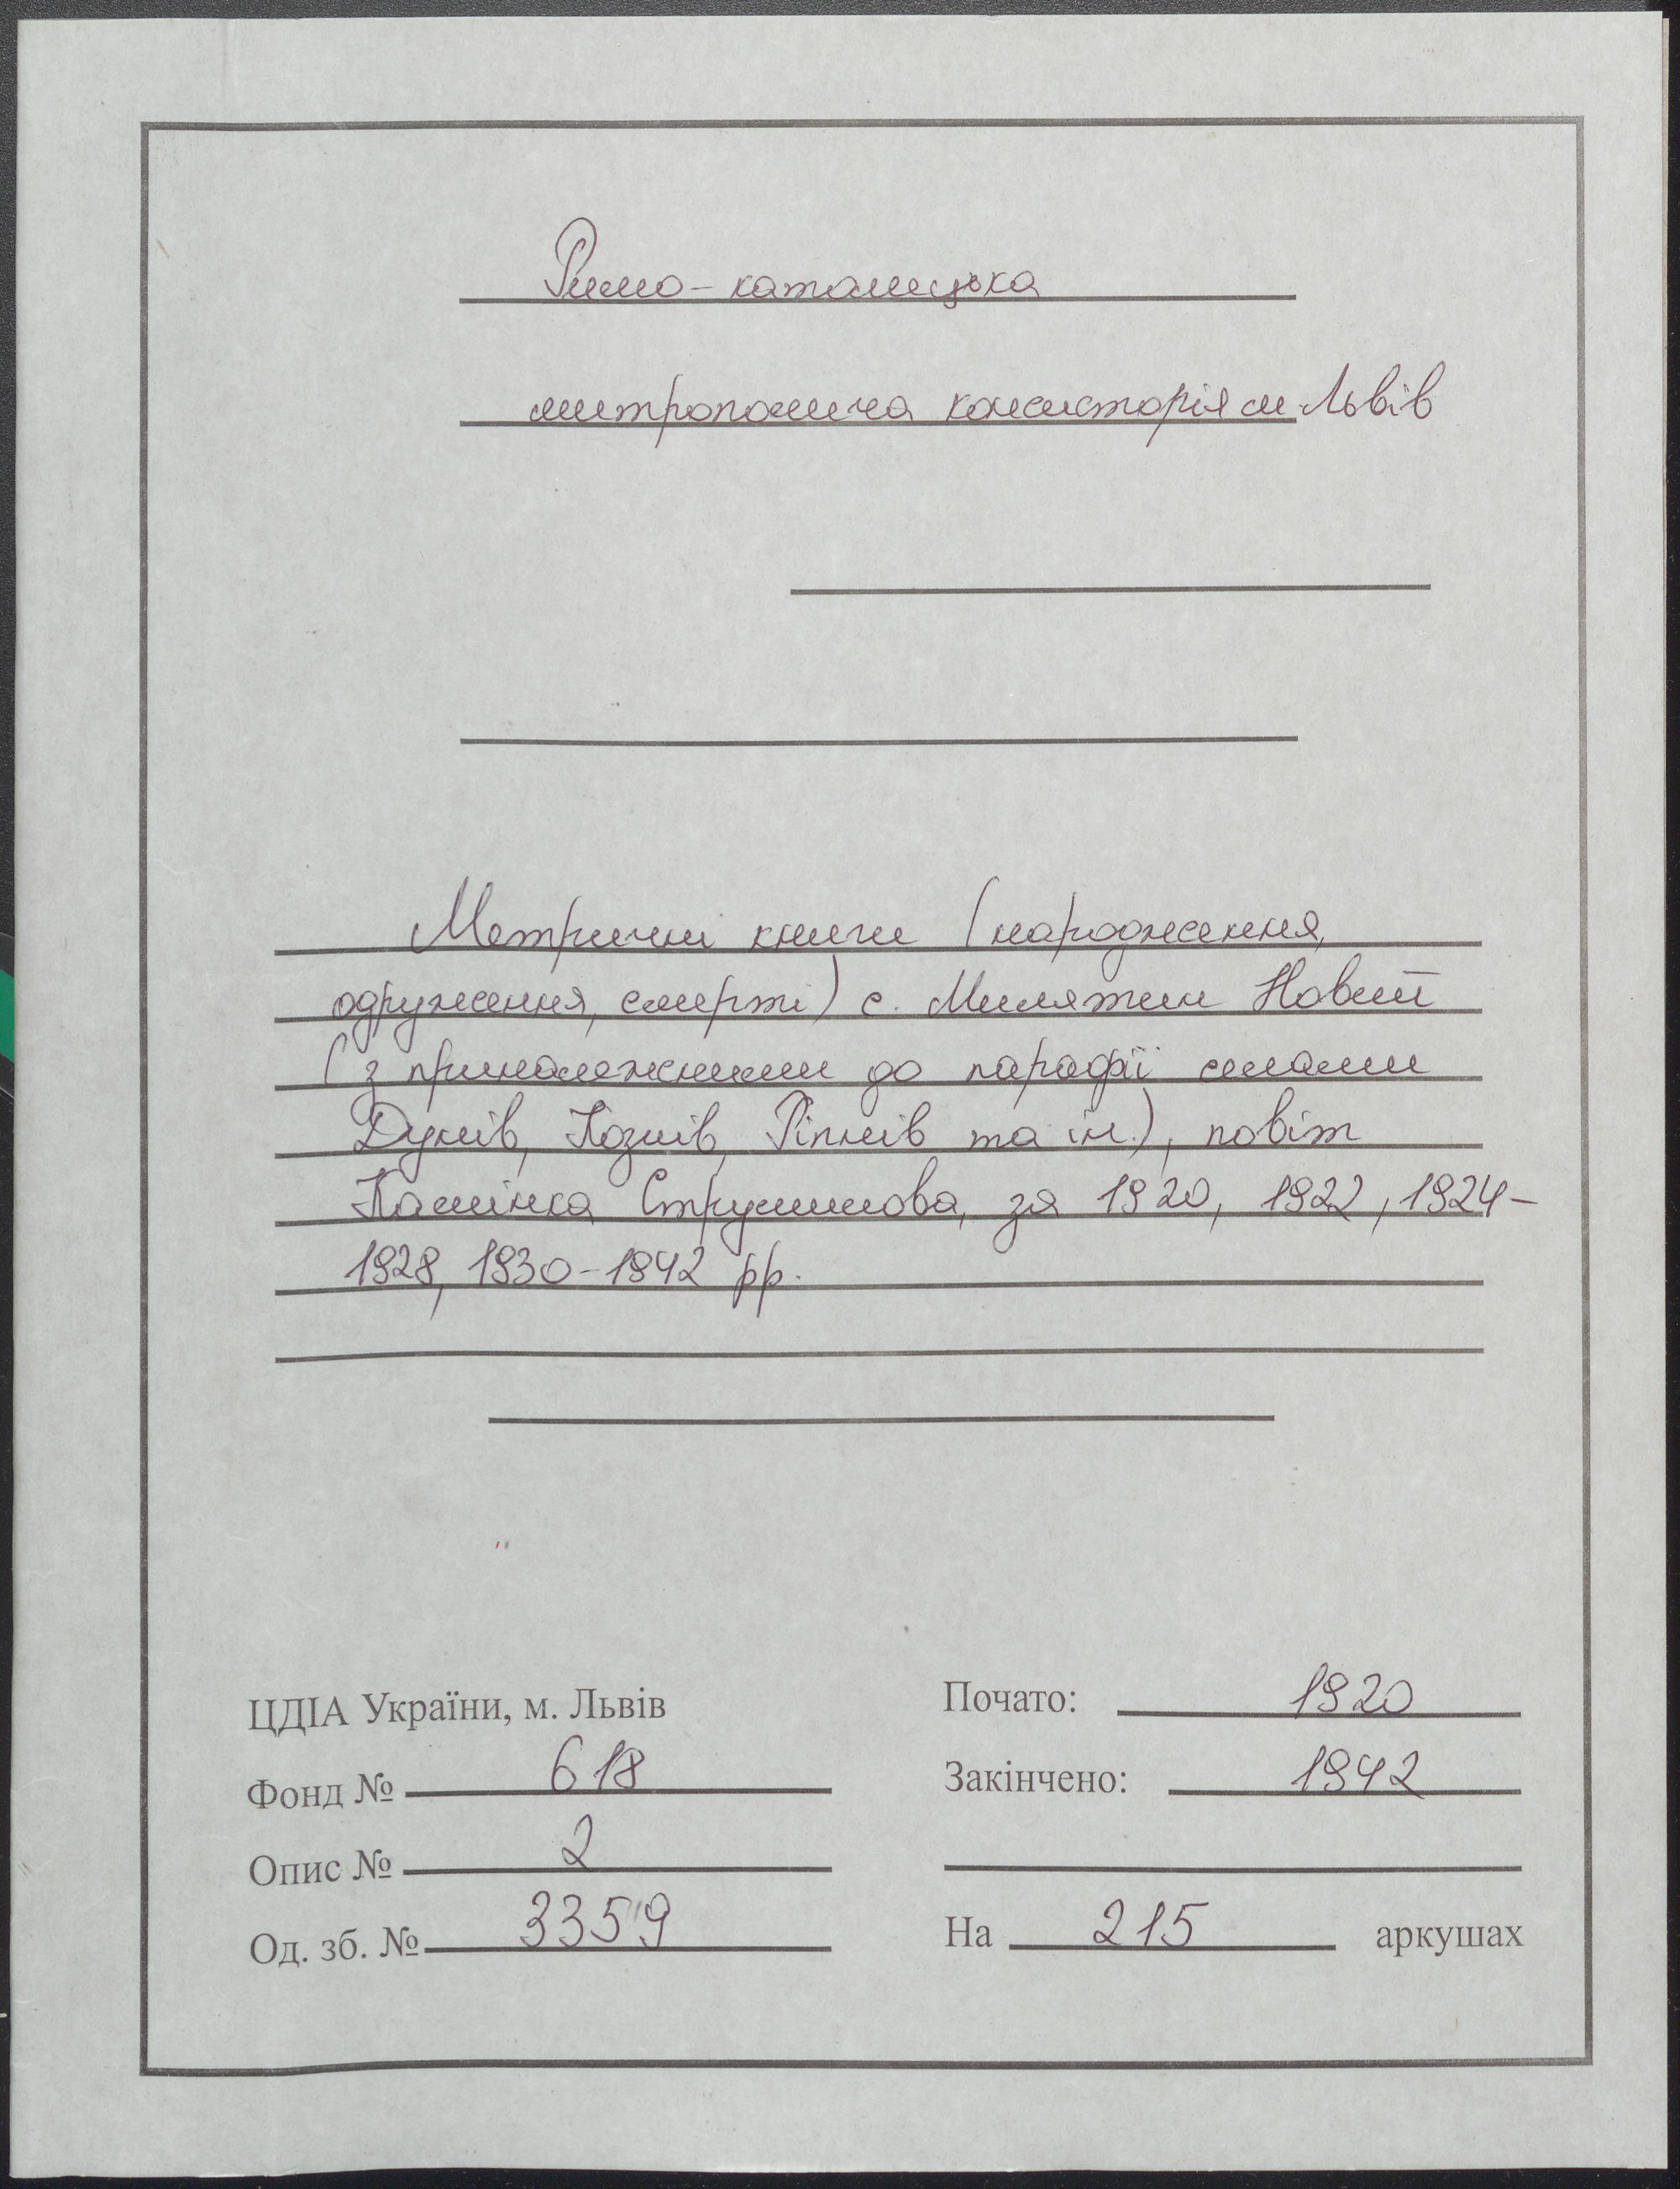 Римо-католицька
митрополича консисторія м. Львів
Метричні книги (народження,
одруження, смерті) с. Милятин Новий
(з приналежними до парафії селами
Дулів, Козлів, Ріпнів та ін.), повіт
Камінка Струмилова, за 1920, 1922, 1924-
1928, 1930-1942 рр.
ЦДІА України, м. Львів
Фонд № 618
Опис № 2
Од. зб. № 3359
Почато: 1920
Закінчено: 1942
На 215 аркушах